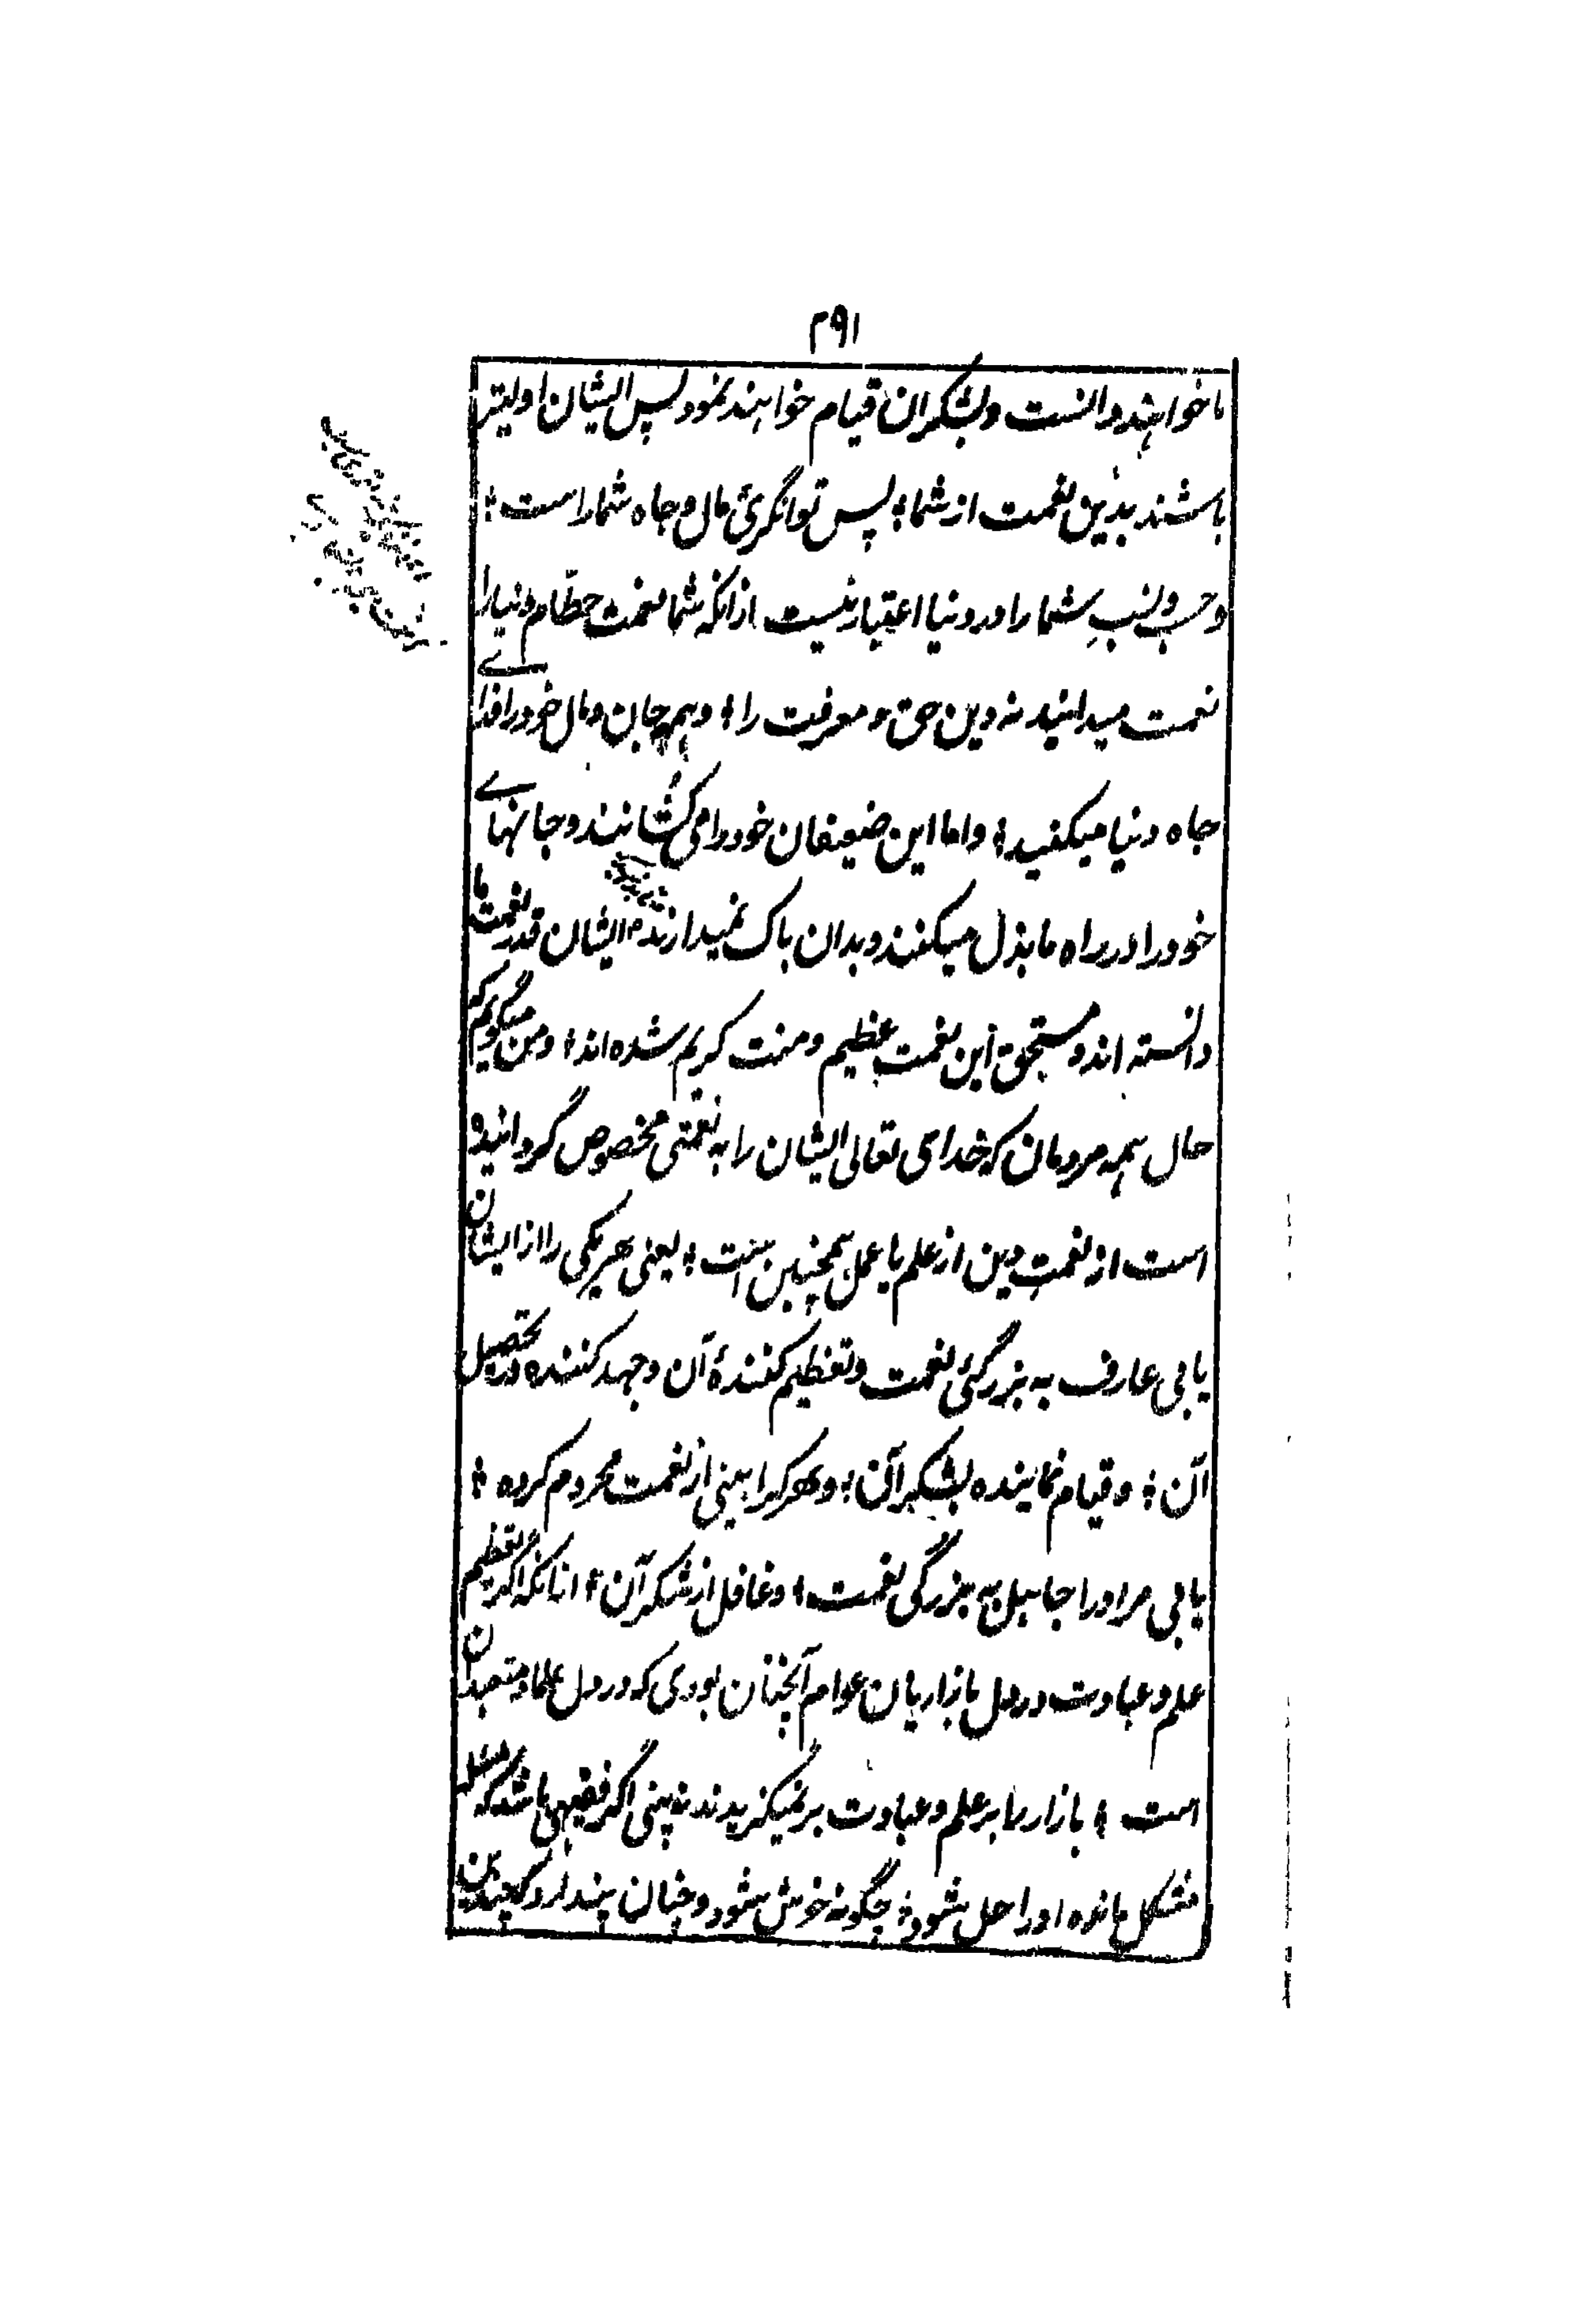 ۲۹۱
ما خواهند دانست و بشکر آن قیام خواهند نمود پس ایشان اولیتر
باشند بدین نعمت از شما؛ پس توانگریٔ مال و جاه شما راست؛
و حسب و نسبِ شما را در دنیا اعتبار نیست ازانکه شما نعمت حطّام دنیا را
نعمت میدانید نه دین حق و معرفت را؛ و همه جان و مال خود را فدای
جاه دنیا میکنید؛ و اما این ضعیفان خود را می کُشانند و جانهای
خود را در راه ما بذل میکنند و بدان باک نمیدارند ایشان قدر نعمت ما
دانسته اند و مستحق این نعمت عظیم و منت کریم شده اند؛ و من میگویم که
حال همه مردمان که خدای تعالی ایشان را به نعمتی مخصوص گردانیده
است از نعمتِ دین از علم یا عمل همچنین است؛ یعنی هر یکی را از ایشان
یابی عارف به بزرگیٔ نعمت و تعظیم کنندهٔ آن و جهد کننده در تحصیل
آن؛ و قیام نماینده بشکر آن؛ و هر کرا بینی از نعمت محروم کرده؛
یابی مر او را جاهل به بزرگی نعمت؛ و غافل از شکر آن؛ ازانکه اگر تعظیم
علم و عبادت در دل بازاریان عوام آنچنان بودی که در دل علما و متعبدان
است؛ بازار را بر علم و عبادت بر نمیگزیدند نه بینی اگر فقیهی باشد که مسئله
مشکل مانده او را حل شود؛ چگونه خوش شود و چنان پندارد که چندین